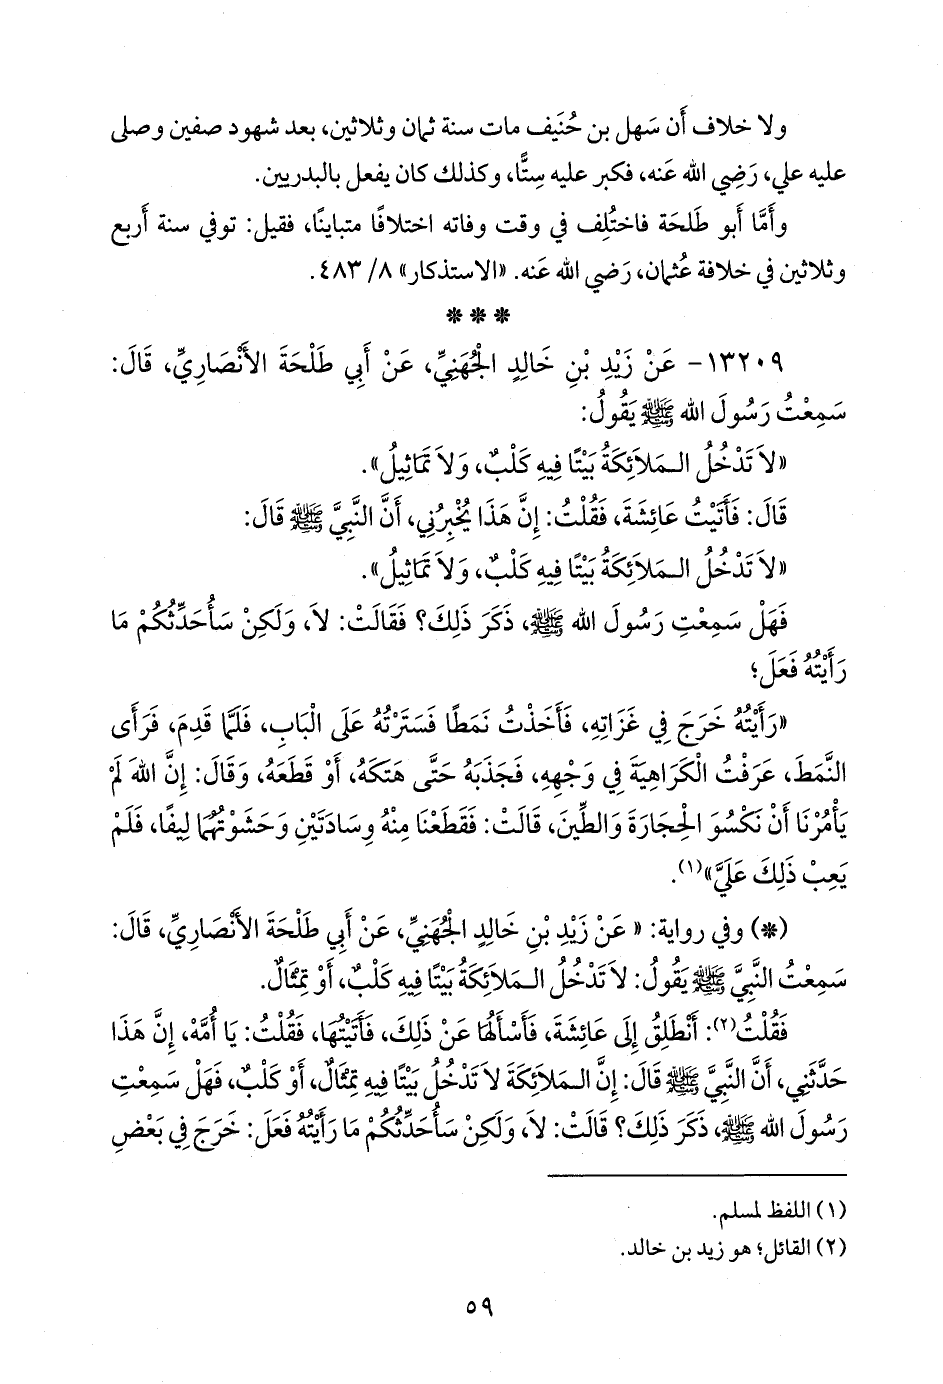 ولا خلاف أن سَهل بن حُنَيف مات سنة ثمان وثلاثين، بعد شهود صفين وصلى
عليه علي، رَضِي الله عَنه، فكبر عليه سِتًّا، وكذلك كان يفعل بالبدريين.
وأَمَّا أبو طَلحَة فاختُلِف في وقت وفاته اختلافًا متباينًا، فقيل: توفي سنة أَربع
وثلاثين في خلافة عُثمان، رَضي الله عَنه. «الاستذكار» ٨/ ٤٨٣.
* * *
١٣٢٠٩- عَنْ زَيْدِ بْنِ خَالِدٍ الْجُهَنِيِّ، عَنْ أَبِي طَلْحَةَ الأَنْصَارِيِّ، قَالَ:
سَمِعْتُ رَسُولَ الله ﷺ يَقُولُ:
«لاَ تَدْخُلُ الـمَلاَئِكَةُ بَيْتًا فِيهِ كَلْبٌ، وَلاَ تَمَاثِيلُ».
قَالَ: فَأَتَيْتُ عَائِشَةَ، فَقُلْتُ: إِنَّ هَذَا يُخْبِرُنِي، أَنَّ النَّبِيَّ ﷺ قَالَ:
«لاَ تَدْخُلُ الـمَلاَئِكَةُ بَيْتًا فِيهِ كَلْبٌ، وَلاَ تَمَاثِيلُ».
فَهَلْ سَمِعْتِ رَسُولَ الله ﷺ، ذَكَرَ ذَلِكَ؟ فَقَالَتْ: لاَ، وَلَكِنْ سَأُحَدِّثُكُمْ مَا
رَأَيْتُهُ فَعَلَ؛
«رَأَيْتُهُ خَرَجَ فِي غَزَاتِهِ، فَأَخَذْتُ نَمَطًا فَسَتَرْتُهُ عَلَى الْبَابِ، فَلَمَّا قَدِمَ، فَرَأَى
النَّمَطَ، عَرَفْتُ الْكَرَاهِيَةَ فِي وَجْهِهِ، فَجَذَبَهُ حَتَّى هَتَكَهُ، أَوْ قَطَعَهُ، وَقَالَ: إِنَّ اللهَ لَمْ
يَأْمُرْنَا أَنْ نَكْسُوَ الْحِجَارَةَ وَالطِّينَ، قَالَتْ: فَقَطَعْنَا مِنْهُ وِسَادَتَيْنِ وَحَشَوْتُهُمَا لِيفًا، فَلَمْ
يَعِبْ ذَلِكَ عَلَيَّ»(١).
(*) وفي رواية: «عَنْ زَيْدِ بْنِ خَالِدٍ الْجُهَنِيِّ، عَنْ أَبِي طَلْحَةَ الأَنْصَارِيِّ، قَالَ:
سَمِعْتُ النَّبِيَّ ﷺ يَقُولُ: لاَ تَدْخُلُ الـمَلاَئِكَةُ بَيْتًا فِيهِ كَلْبٌ، أَوْ تِمْثَالٌ.
فَقُلْتُ(٢): أَنْطَلِقُ إِلَى عَائِشَةَ، فَأَسْأَلُهَا عَنْ ذَلِكَ، فَأَتَيْتُهَا، فَقُلْتُ: يَا أُمَّهْ، إِنَّ هَذَا
حَدَّثَنِي، أَنَّ النَّبِيَّ ﷺ قَالَ: إِنَّ الـمَلاَئِكَةَ لاَ تَدْخُلُ بَيْتًا فِيهِ تِمْثَالٌ، أَوْ كَلْبٌ، فَهَلْ سَمِعْتِ
رَسُولَ الله ﷺ، ذَكَرَ ذَلِكَ؟ قَالَتْ: لاَ، وَلَكِنْ سَأُحَدِّثُكُمْ مَا رَأَيْتُهُ فَعَلَ: خَرَجَ فِي بَعْضِ
(١) اللفظ لمسلم.
(٢) القائل؛ هو زيد بن خالد.
٥٩